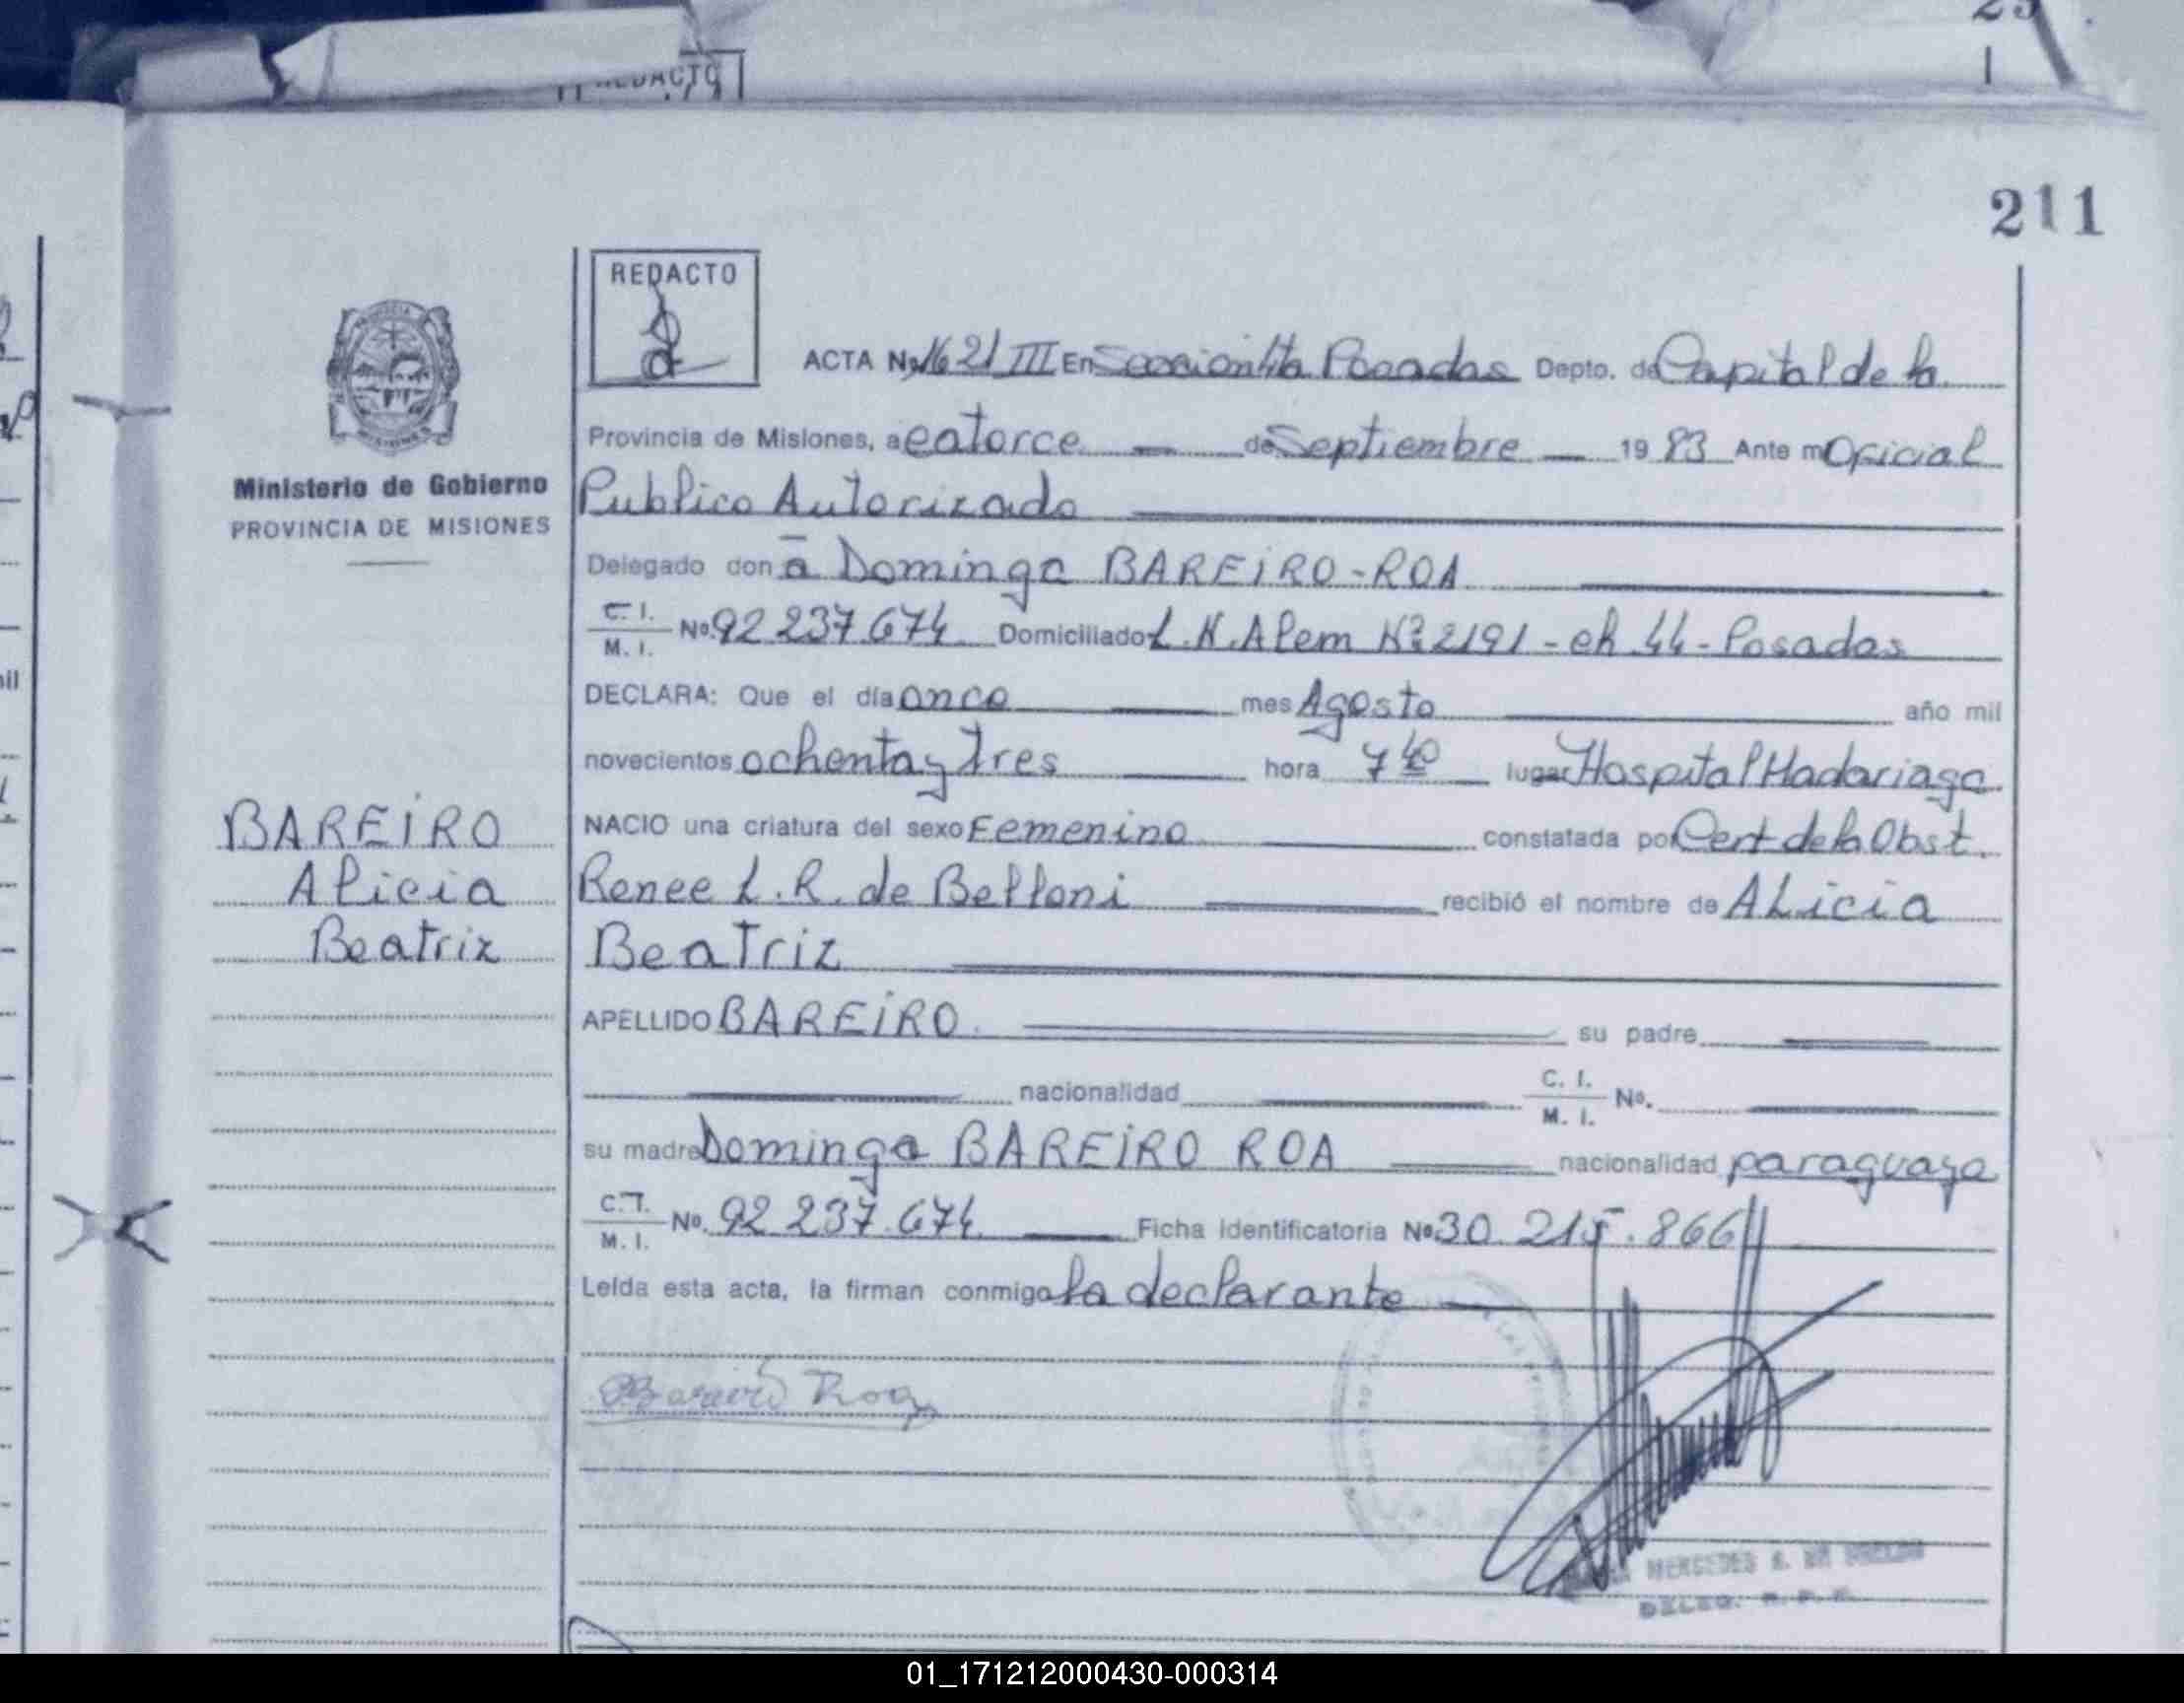 211
REDACTO
ACTA No. 1621 III En Sección 4ta Posadas Depto. de Capital de la
Provincia de Misiones, a catorce de Septiembre 1983 Ante mí Oficial
Publico Autorizado
Delegado don a Dominga BAREIRO-ROA
C. I. M. I. No. 92 237 674 Domiciliado L.N.Alem Nº 2191 - ch 44 - Posadas
DECLARA: Que el día once mes Agosto año mil
novecientos ochenta y tres hora 7 40 lugar Hospital Madariaga
NACIO una criatura del sexo Femenino constatada por Cert de la Obst.
Renee L.R. de Belloni recibió el nombre de ALicia
Beatriz
APELLIDO BAREIRO su padre
nacionalidad C. I. M. I. No.
su madre Dominga BAREIRO ROA nacionalidad paraguaya
C. I. M. I. No. 92 237.674 Ficha Identificatoria No 30.215.866
Leída esta acta, la firman conmigo la declarante
Bareiro Roa
MERCEDES
DELEG.
Ministerio de Gobierno
PROVINCIA DE MISIONES
BAREIRO
Alicia
Beatriz
01_171212000430-000314